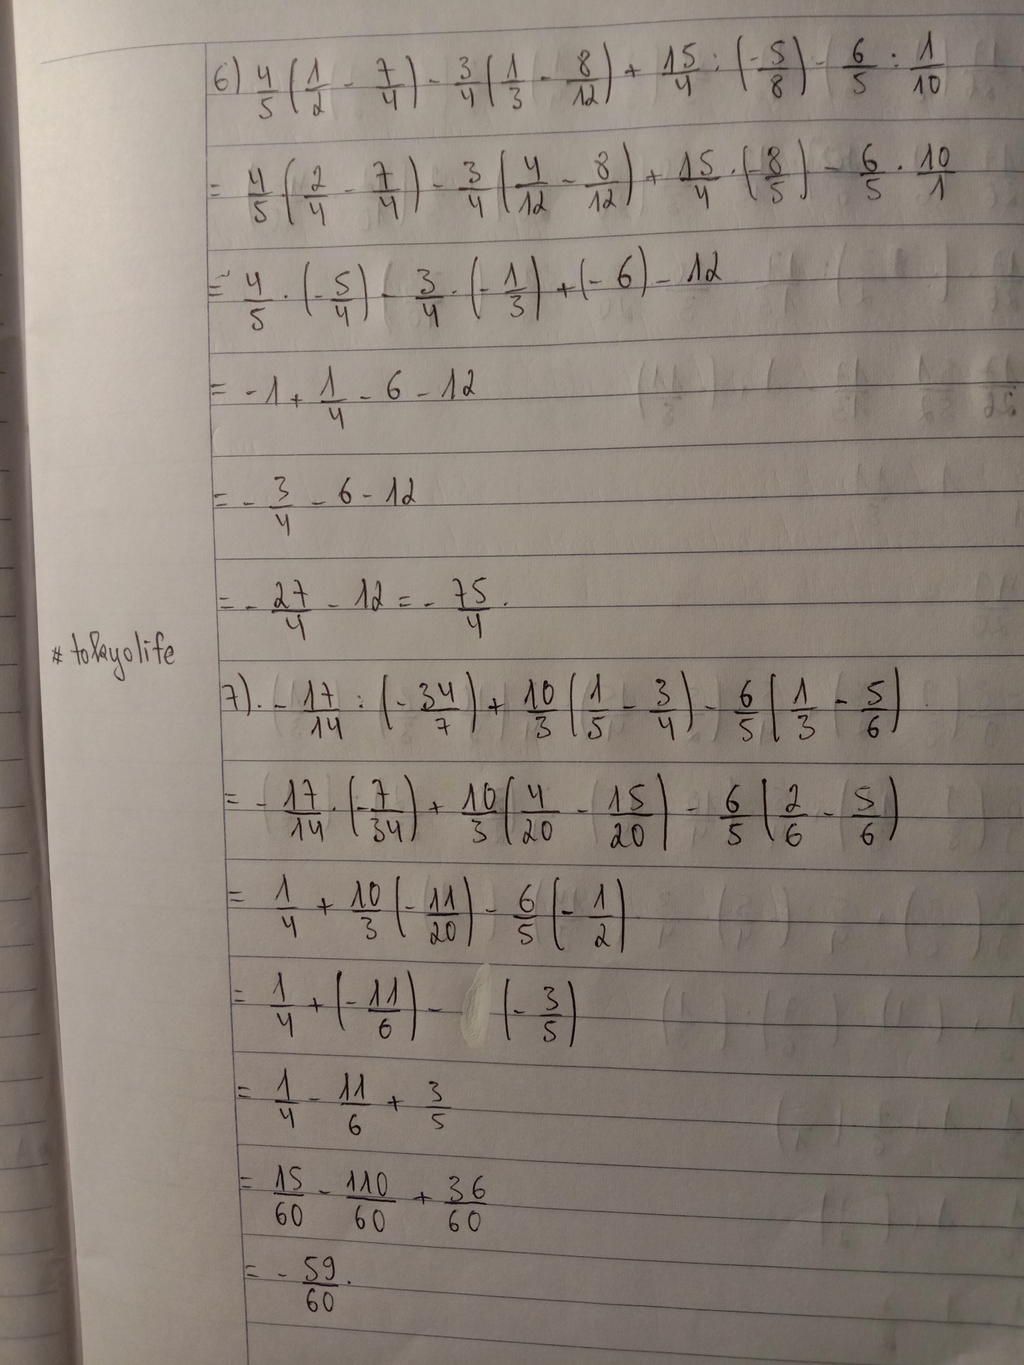 6) 4/5 (1/2 - 7/4) - 3/4 (1/3 - 8/12) + 15/4 : (-5/8) - 6/5 : 1/10
= 4/5 (2/4 - 7/4) - 3/4 (4/12 - 8/12) + 15/4 . (-8/5) - 6/5 . 10/1
= 4/5 . (-5/4) - 3/4 . (-1/3) + (-6) - 12
= -1 + 1/4 - 6 - 12
= -3/4 - 6 - 12
= -27/4 - 12 = -75/4 .
#tokyolife
7). -17/14 : (-34/7) + 10/3 (1/5 - 3/4) - 6/5 (1/3 - 5/6)
= -17/14 . (-7/34) + 10/3 (4/20 - 15/20) - 6/5 (2/6 - 5/6)
= 1/4 + 10/3 (-11/20) - 6/5 (-1/2)
= 1/4 + (-11/6) - (-3/5)
= 1/4 - 11/6 + 3/5
= 15/60 - 110/60 + 36/60
= -59/60 .